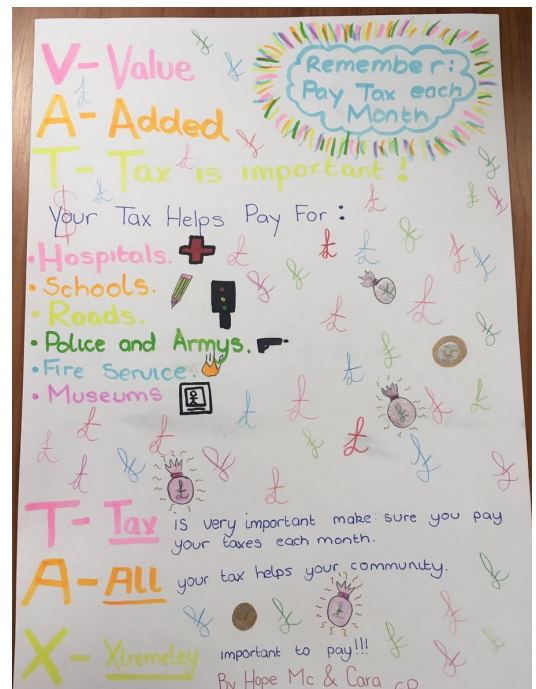 V- Value
A- Added
T- Tax is important!
Remember:
Pay Tax each
Month
Your Tax Helps Pay For:
• Hospitals.
• Schools.
• Roads.
• Police and Armys.
• Fire Service.
• Museums
T- Tax is very important make sure you pay
your taxes each month.
A- ALL your tax helps your community.
X- Xtremeley important to pay!!!
By Hope Mc & Cara